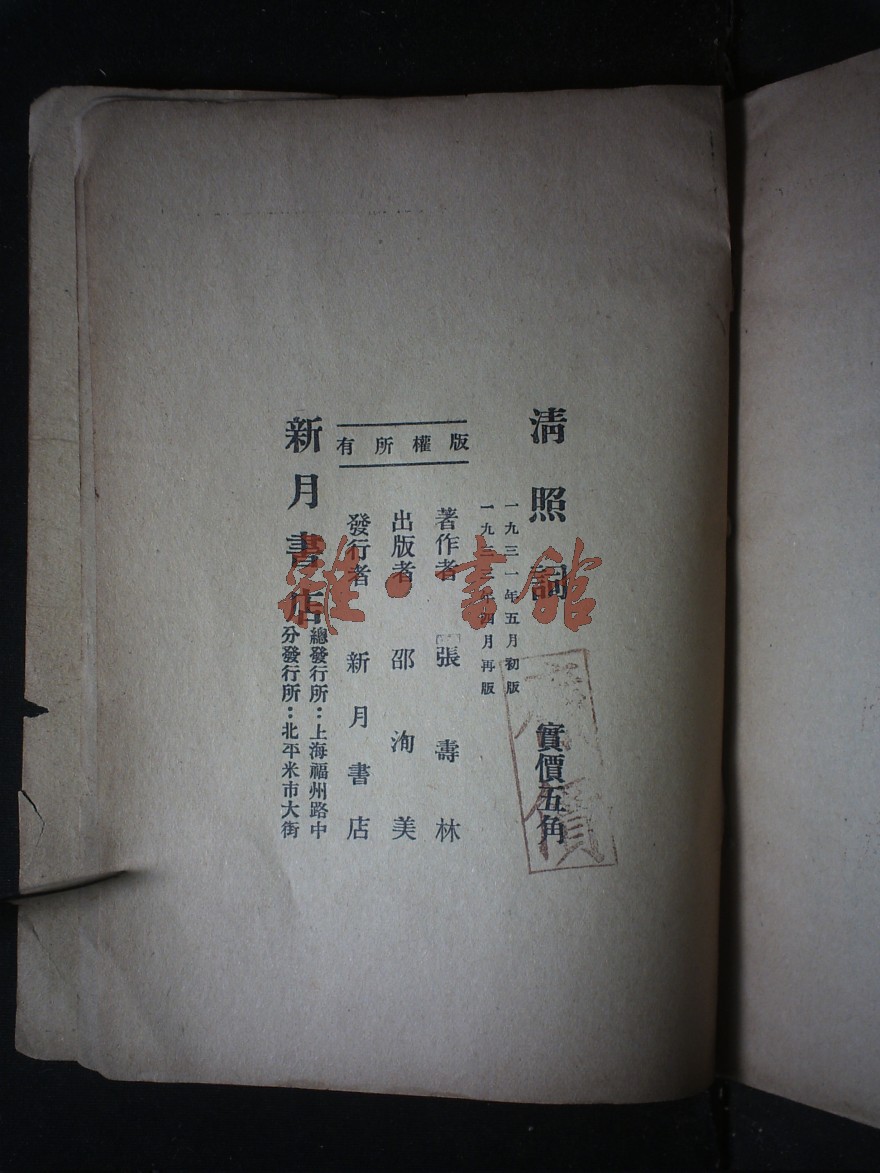 清照詞　實價五角
一九三一年五月初版
一九三三年四月再版
版權所有
著作者　張壽林
出版者　邵洵美
發行者　新月書店
新月書店
總發行所：上海福州路中
分發行所：北平米市大街
雜·書館